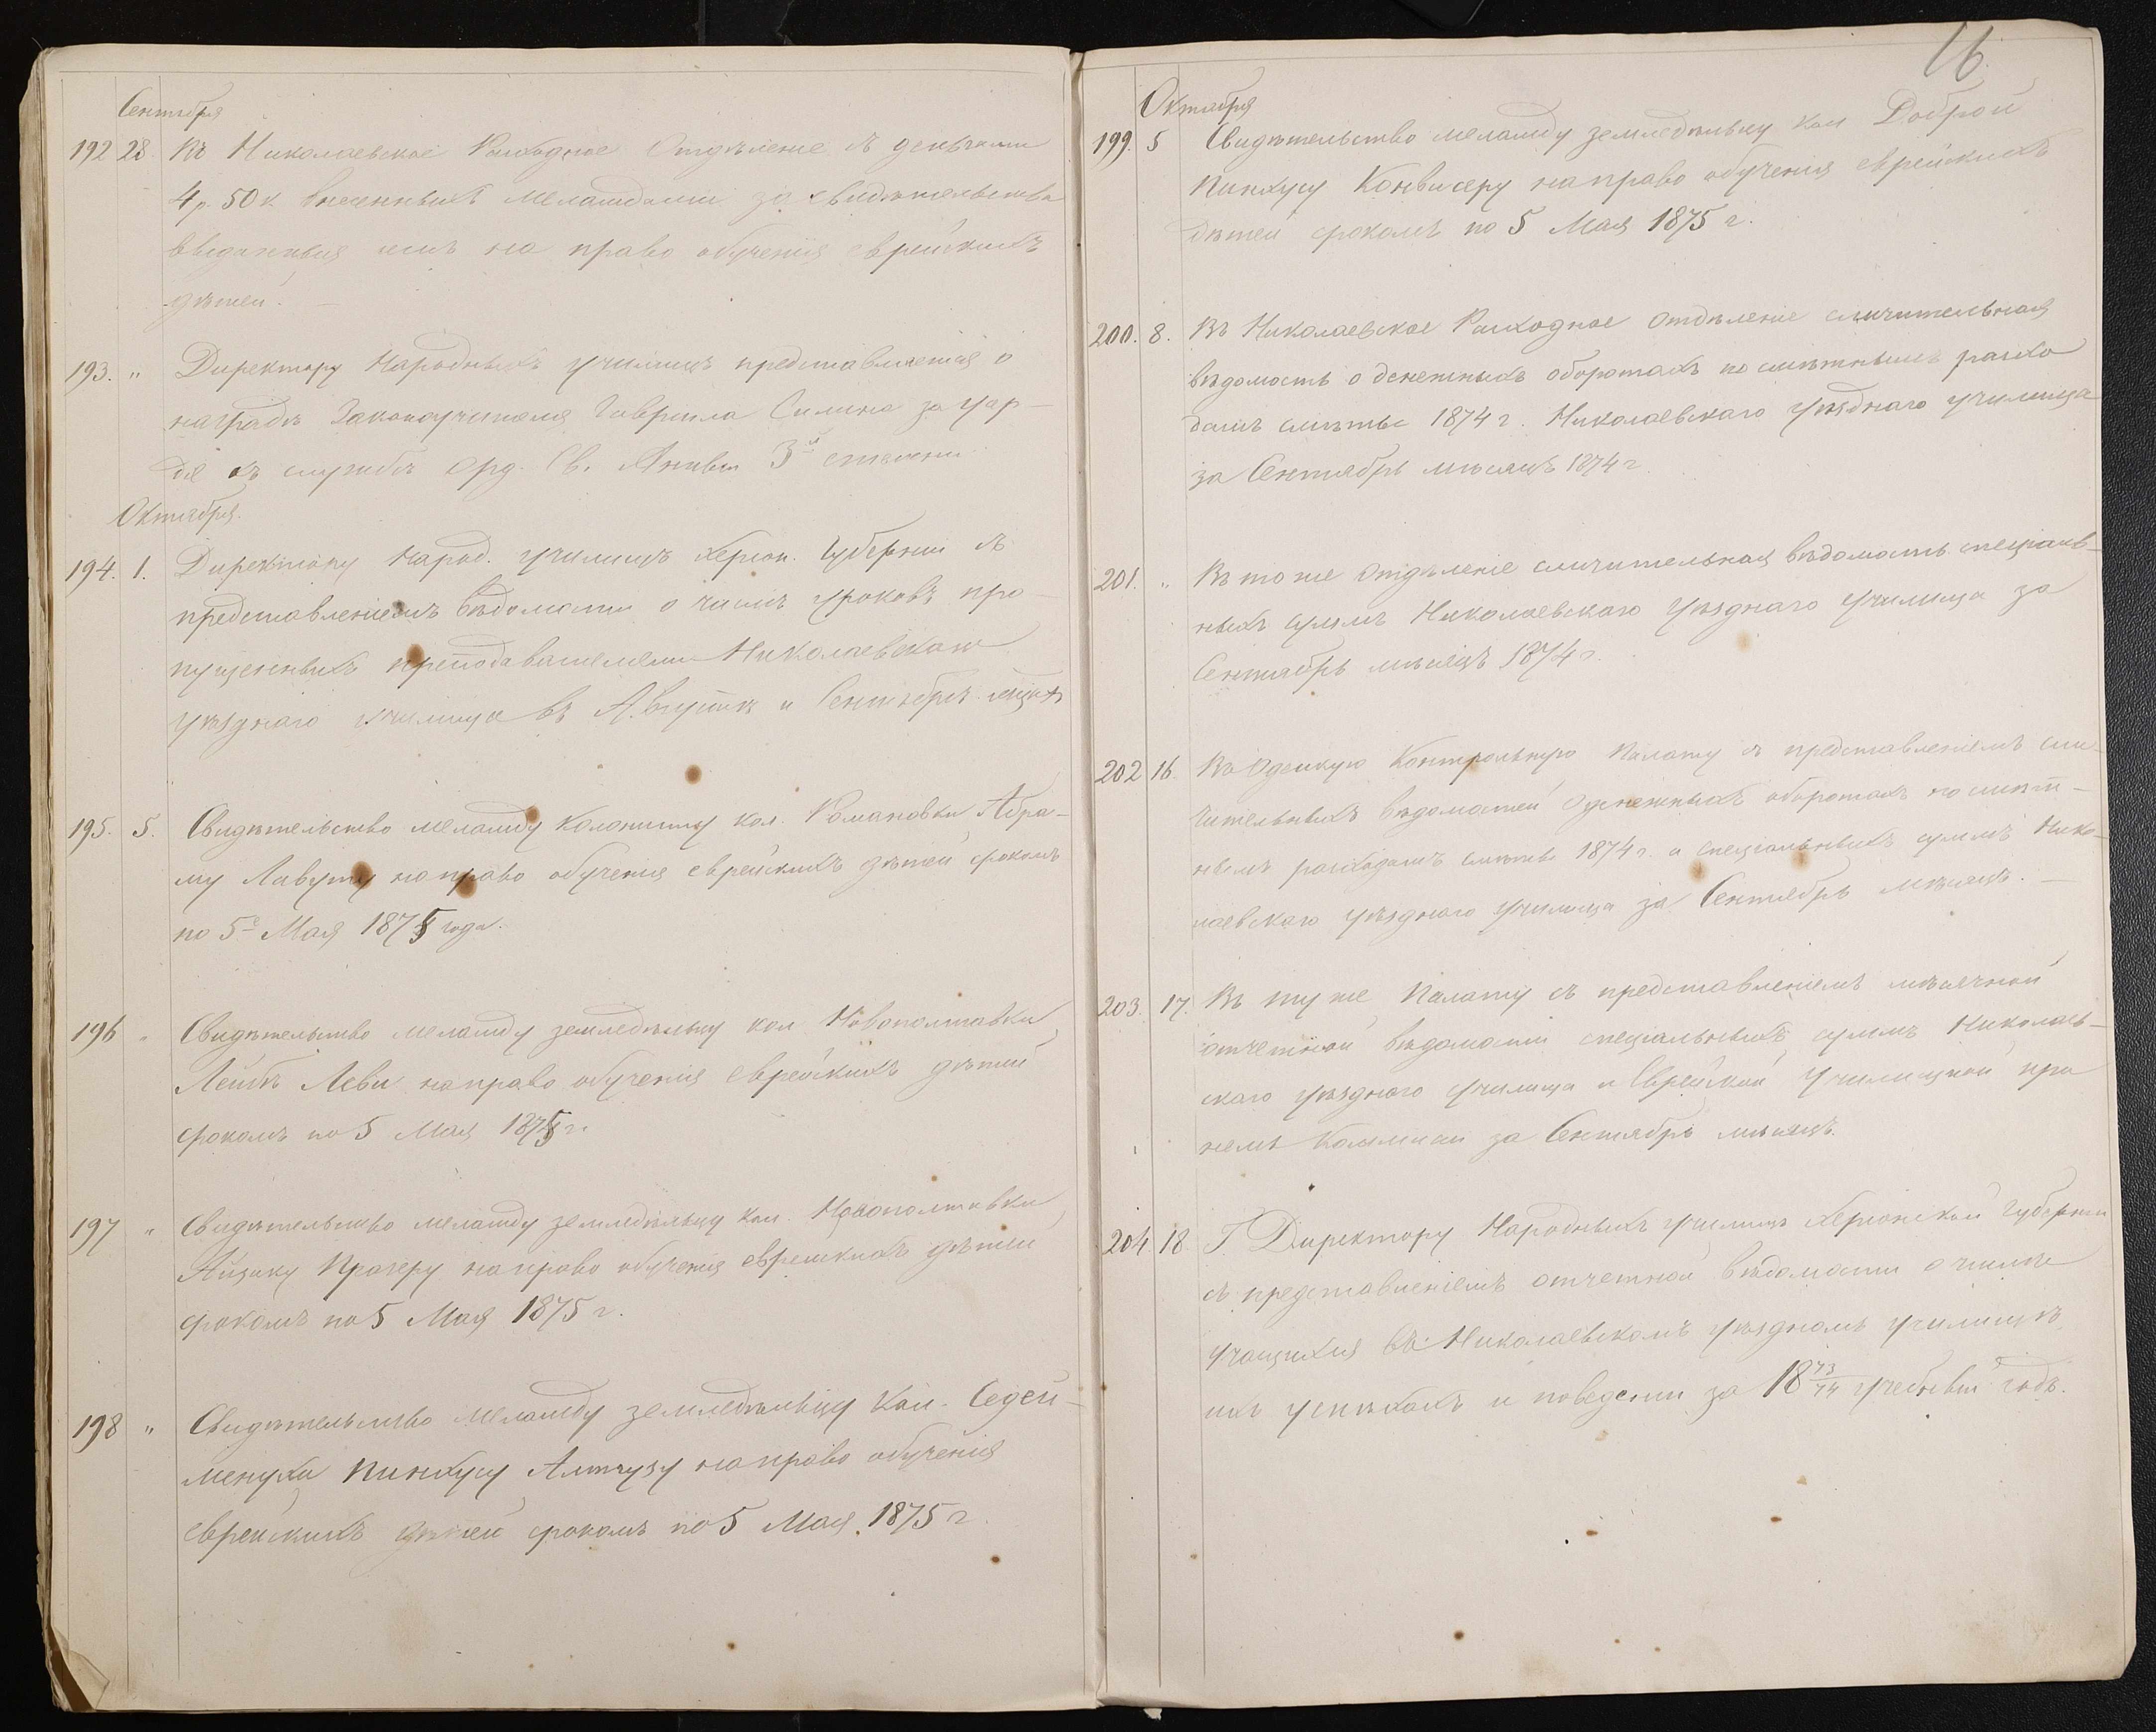 Сентября
192 28. Въ Николаевское Расходное Отдѣленіе съ деньгами
4 р. 50 к. внесенныхъ меламдами за свидѣтельства
выданныя имъ на право обученія еврейскихъ
дѣтей. —
193. " Директору Народныхъ училищъ представляется о
наградѣ Законоучителя Гавріила Силина за усер-
діе къ службѣ орд. Св. Анны 3й степени
Октября.
194. 1. Директору Народ. училищъ Херсон. Губерніи съ
представленіемъ вѣдомости о числѣ уроковъ про-
пущенныхъ преподавателями Николаевскаго
уѣзднаго училища въ Августѣ и Сентябрѣ
195. 5. Свидѣтельство меламду колонисту кол. Романовки Абра-
му Лавуту на право обученія еврейскихъ дѣтей срокомъ
по 5е Мая 1875 года.
196 " Свидѣтельство меламду земледѣльцу кол Новополтавки
Лейбѣ Леви на право обученія еврейскихъ дѣтей
срокомъ по 5 Мая 1875 г.
197 " Свидѣтельство меламду земледѣльцу кол. Новополтавки
Айзику Прагеру на право обученія еврейскихъ дѣтей
срокомъ по 5 Мая 1875 г.
198 " Свидѣтельство меламду земледѣльцу кол. Седей-
менухи Пинхусу на право обученія
еврейскихъ дѣтей срокомъ по 5 Мая 1875 г.
16
Октября
199. 5 Свидѣтельство меламду земледѣльцу кол Доброй
Пинхусу Конвисеру на право обученія еврейскихъ
дѣтей срокомъ по 5 Мая 1875 г.
200. 8. Въ Николаевское Расходное Отдѣленіе сличительная
вѣдомость о денежныхъ оборотахъ по смѣтнымъ расхо
дамъ смѣты 1874 г. Николаевскаго уѣзднаго училища
за Сентябрь мѣсяцъ 1874 г
201. " Въ то же Отдѣленіе сличительная вѣдомость спеціаль-
ныхъ суммъ Николаевскаго уѣзднаго училища за
Сентябрь мѣсяцъ 1874 г.
202 16. Въ Одесскую Контрольную Палату съ представленіемъ сли-
чительныхъ вѣдомостей о денежныхъ оборотахъ по смѣт-
нымъ расходамъ смѣты 1874 г. и спеціальныхъ суммъ Нико-
лаевскаго уѣзднаго училища за Сентябрь мѣсяцъ. —
203. 17. Въ ту же Палату съ представленіемъ мѣсячной
отчетной вѣдомости спеціальныхъ суммъ Николаев-
скаго уѣзднаго училища и Еврейской училищной при
немъ Коммисіи за Сентябрь мѣсяцъ.
204. 18 Г. Директору Народныхъ училищъ Херсонской Губерніи
съ представленіемъ отчетной вѣдомости о числѣ
учащихся въ Николаевскомъ уѣздномъ училищѣ,
ихъ успѣхахъ и поведеніи за 18 73/74 учебный годъ.